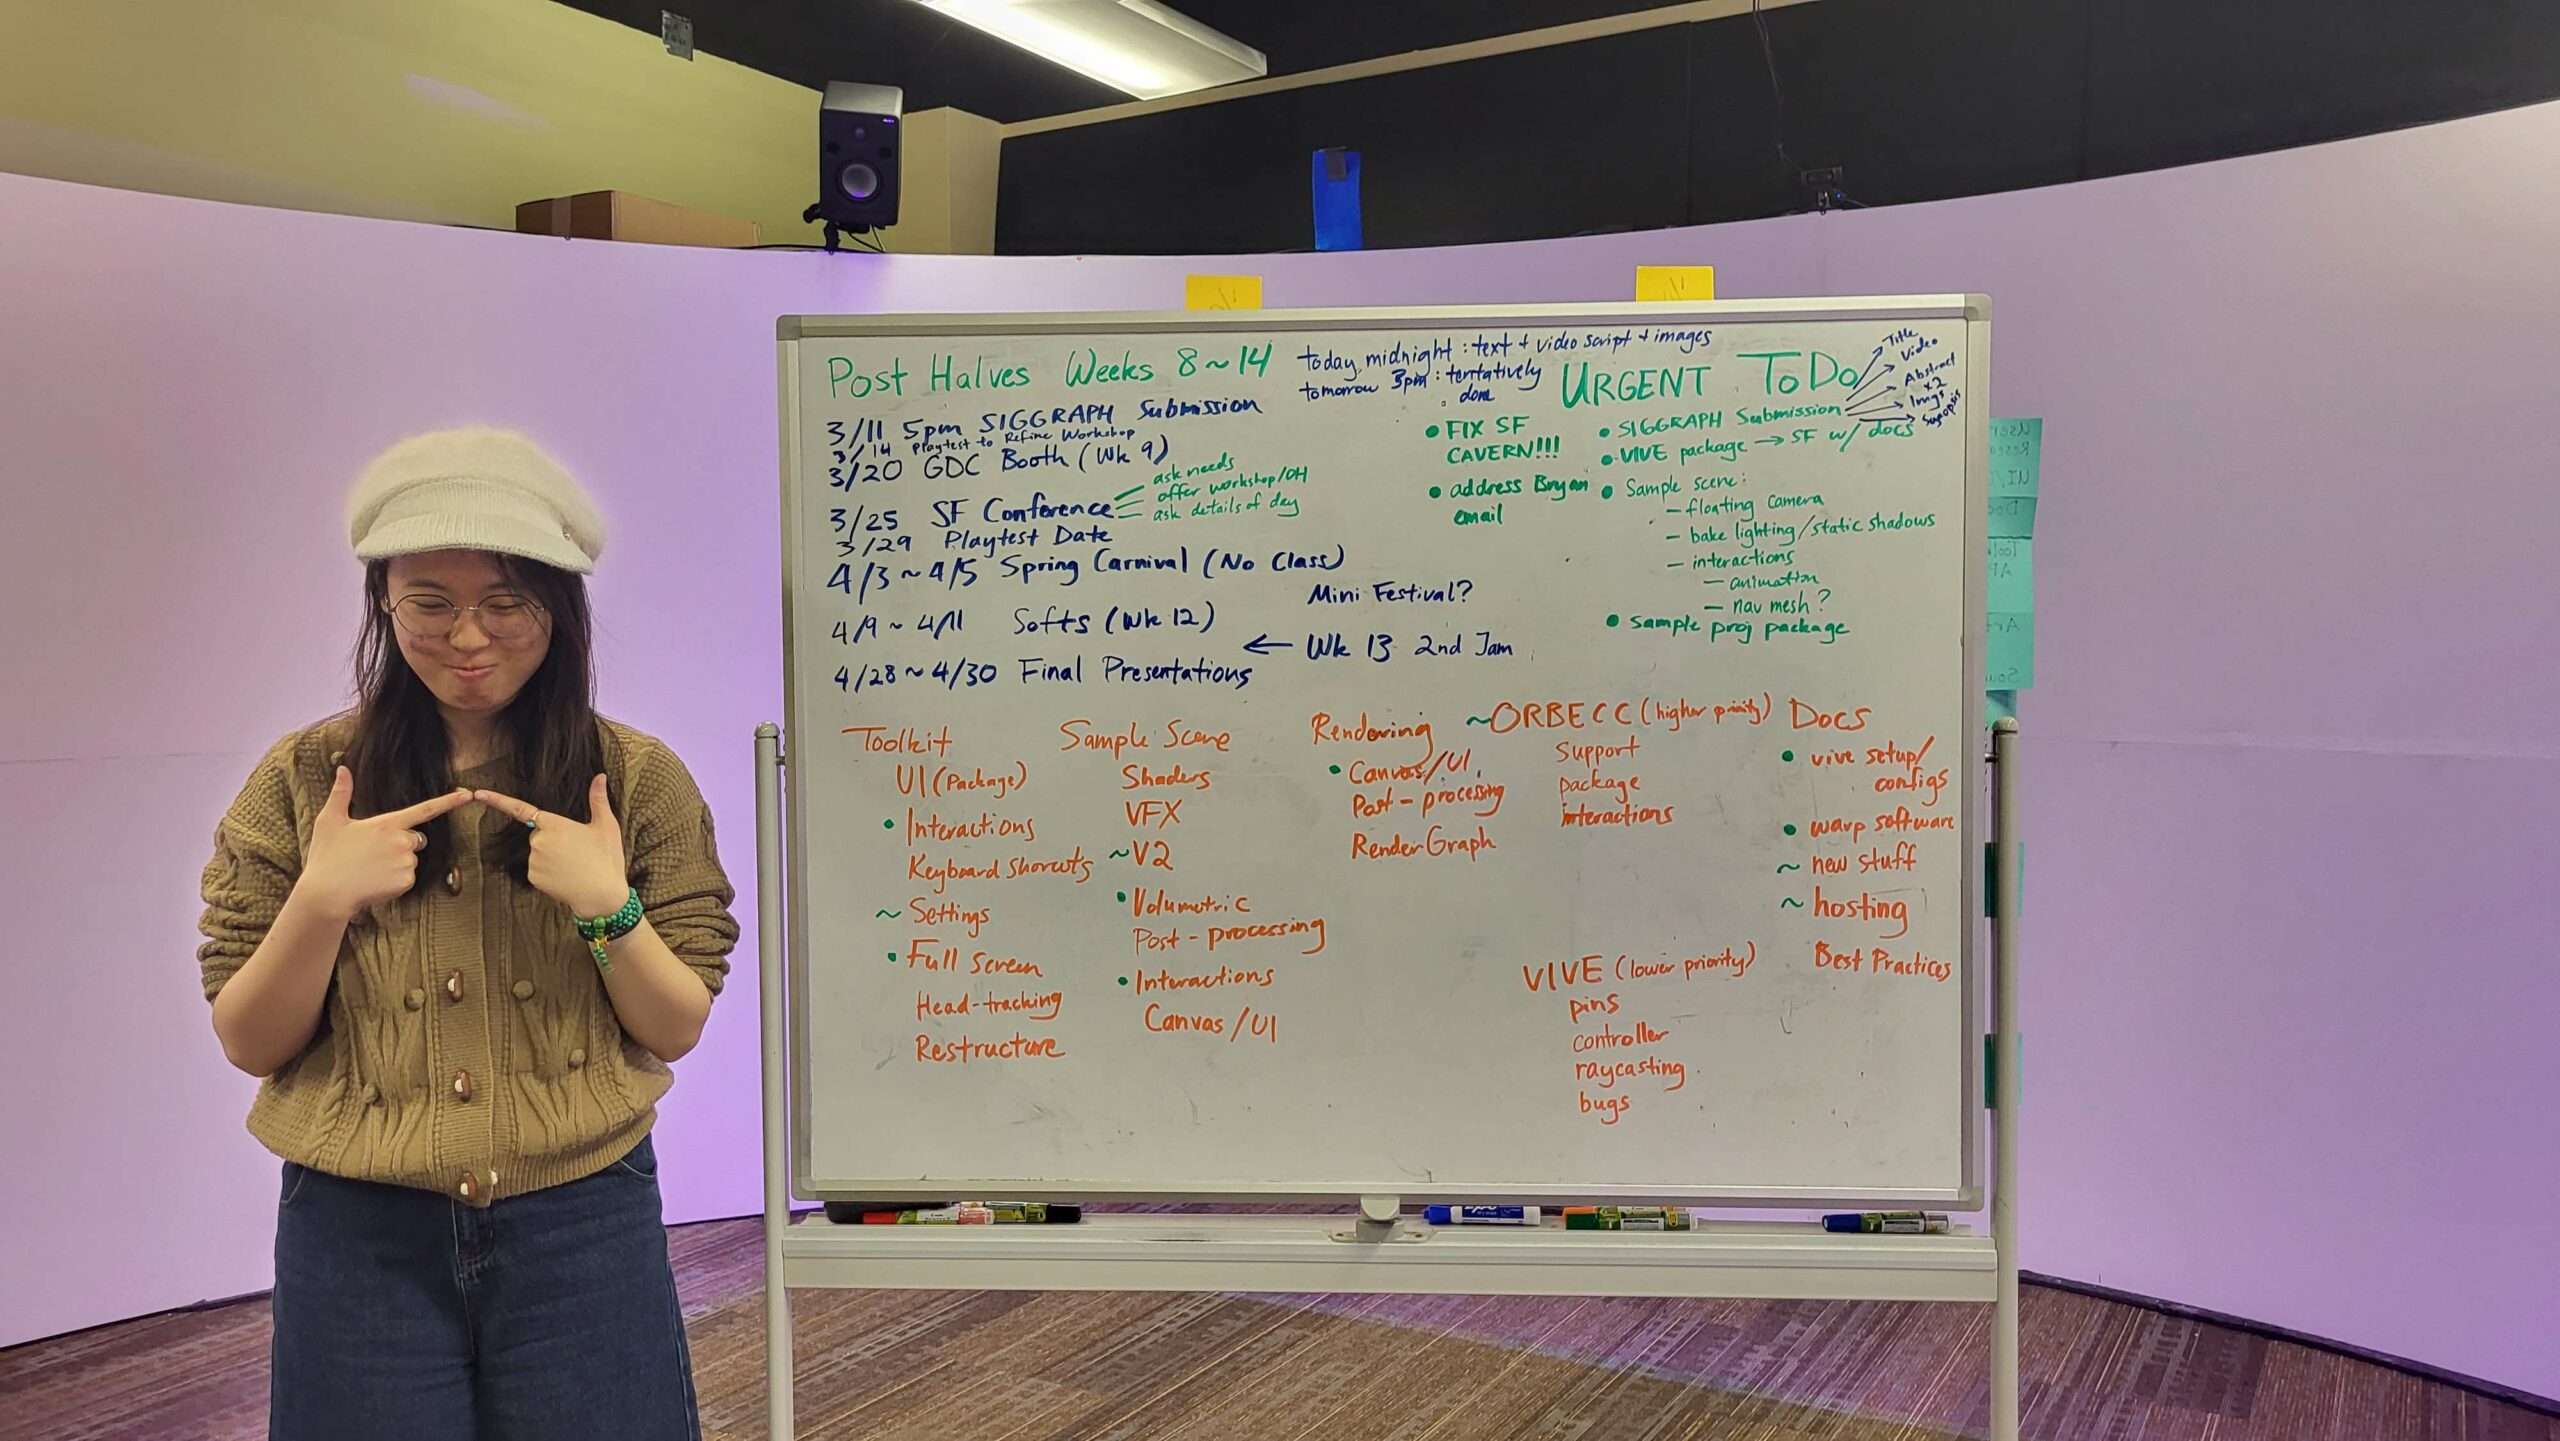 Post Halves Weeks 8~14
today midnight : text + video script + images
tomorrow 3pm : tentatively
done
3/11 5pm SIGGRAPH Submission
3/14 Playtest to Refine Workshop
3/20 GDC Booth (Wk 9)
3/25 SF Conference
ask needs
offer workshop/OH
ask details of day
3/29 Playtest Date
4/3 ~ 4/5 Spring Carnival (No Class)
4/9 ~ 4/11 Softs (Wk 12)
Mini Festival?
← Wk 13 2nd Jam
4/28 ~ 4/30 Final Presentations
• FIX SF
CAVERN!!!
• address Bryan
email
URGENT ToDo
• SIGGRAPH Submission
Title
Video
Abstract
x2
Imgs
• VIVE package → SF w/ docs
• Sample scene:
- floating camera
- bake lighting/static shadows
- interactions
- animation
- nav mesh?
• sample proj package
Toolkit
UI (Package)
• Interactions
Keyboard Shorcuts
~ Settings
• Full Screen
Head-tracking
Restructure
Sample Scene
Shaders
VFX
~ V2
• Volumetric
Post-processing
• Interactions
Canvas/UI
Rendering
• Canvas/UI
Post-processing
RenderGraph
~ORBECC (higher priority)
support
package
interactions
VIVE (lower priority)
pins
controller
raycasting
bugs
Docs
• vive setup/
configs
• warp software
~ new stuff
~ hosting
Best Practices